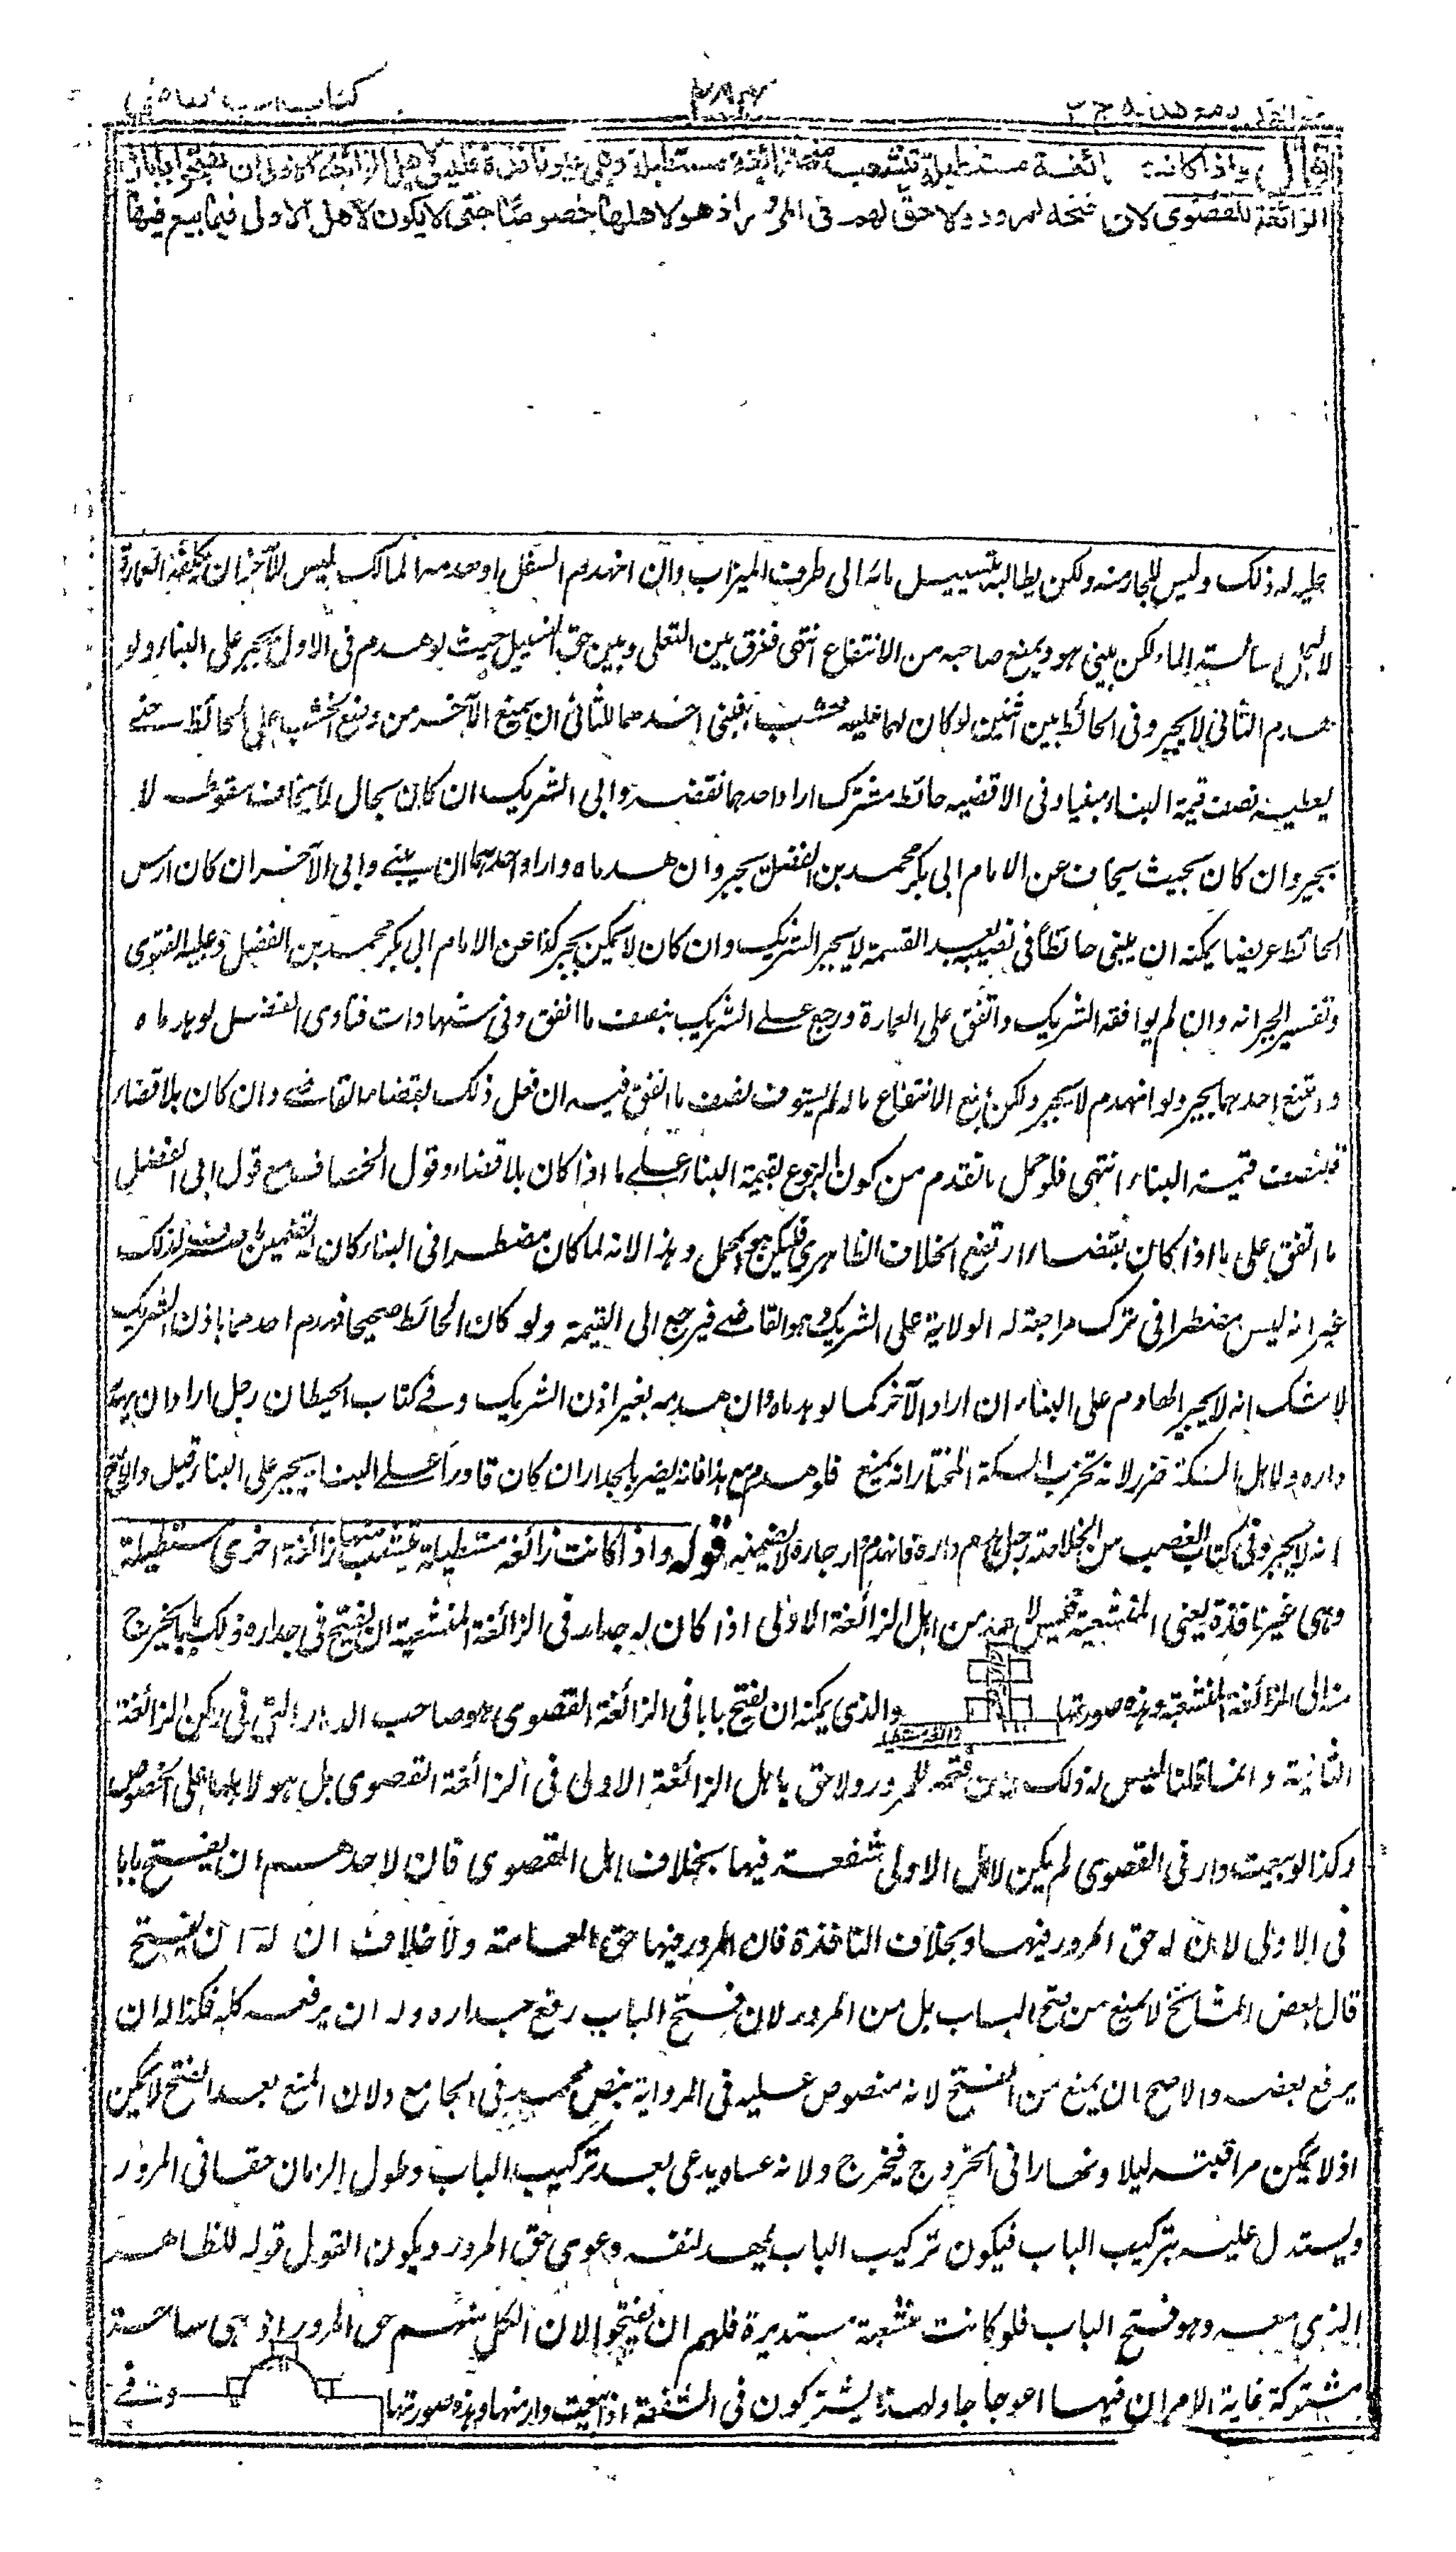 كتاب
قال واذا كانت زائغة مستطيلة تنشعب منها زائغة مستطيلة وهي غير نافذة فليس لاهل الزائغة الاولى ان يفتحوا بابا في
الزائغة القصوى لان فتحه للمرور ولا حق لهم فى المرور اذ هو لاهلها خصوصًا حتى لا يكون لاهل الاولى فيما بيع فيها
عليه له ذلك وليس للجار منعه ولكن يطالبه بتسييل مائه الى طرف الميزاب وان انهدم السفل او هدمه المالك ليس للآخر ان يكلفه العمارة
لاجل اسالة الماء لكن يبنى هو ويمنع صاحبه من الانتفاع انتهى ففرق بين التعلى وبين حق التسييل حيث لو هدم فى الاول يجبر على البناء ولو
هدم الثانى لا يجبر وفى الحائط بين اثنين لو كان لهما عليه خشب فبنى احدهما للثانى ان يمنع الآخر من وضع الخشب على الحائط حتى
يعطيه نصف قيمة البناء مبنيا وفى الاقضية حائط مشترك اراد احدهما نقضه وابى الشريك ان كان بحال لا يخاف سقوطه لا
يجبر وان كان بحيث يخاف عن الامام ابى بكر محمد بن الفضل يجبر وان هدماه واراد احدهما ان يبنى وابى الآخر ان كان اس
الحائط عريضا يمكنه ان يبنى حائطا فى نصيبه بعد القسمة لا يجبر الشريك وان كان لا يمكن يجبر كذا عن الامام ابى بكر محمد بن الفضل وعليه الفتوى
وتفسير الجبر انه وان لم يوافقه الشريك وانفق على العمارة ورجع على الشريك بنصف ما انفق وفى شهادات فتاوى الفضل لو هدماه
وامتنع احدهما يجبر ولو انهدم لا يجبر ولكن يمنع الانتفاع به ما لم يستوف نصف ما انفق فيه ان فعل ذلك بقضاء القاضى وان كان بلا قضاء
فبنصف قيمة البناء انتهى فلو حمل ما تقدم من كون الرجوع بقيمة البناء على ما اذا كان بلا قضاء وقول الخصاف مع قول ابى الفضل
ما انفق على ما اذا كان بقضاء ارتفع الخلاف الظاهرى فليكن هو المحمل وهذا لانه لما كان مضطرا فى البناء كان له تضمين لذلك
غير انه ليس مضطرا فى ترك مراجعة له الولاية على الشريك وهو القاضى فيرجع الى القيمة ولو كان الحائط صحيحا فهدم احدهما باذن الشريك
لا شك انه لا يجبر الهادم على البناء ان اراد الآخر كما لو هدماه وان هدمه بغير اذن الشريك وفى كتاب الحيطان رجل اراد ان يهدم
داره ولاهل السكة ضرر لانه تخرب السكة المختار انه يمنع فلو هدم مع هذا فانه يضر بالجدار ان كان قادرا على البناء يجبر على البناء قيل والاصح
انه لا يجبر وفى كتاب الغصب من الخلاصة رجل هدم داره فانهدم دار جاره لا يضمنه قوله واذا كانت زائغة مستطيلة تنشعب منها زائغة اخرى مستطيلة
وهى غير نافذة يعنى المنشعبة فليس لاحد من اهل الزائغة الاولى اذا كان له جدار فى الزائغة المنشعبة ان يفتح فى جداره ذلك بابا يخرج
منه الى الزائغة المنشعبة وهذه صورتها والذى يمكنه ان يفتح بابا فى الزائغة القصوى هو صاحب الدار التى فى ركن الزائغة
الثانية وانما قلنا ليس له ذلك لان فتحه للمرور ولا حق لاهل الزائغة الاولى فى الزائغة القصوى بل هو لاهلها على الخصوص
وكذا لو بيعت دار فى القصوى لم يكن لاهل الاولى شفعة فيها بخلاف اهل القصوى فان لاحدهم ان يفتح بابا
فى الاولى لان له حق المرور فيها وبخلاف النافذة فان المرور فيها حق العامة ولا خلاف ان له ان يفتح
قال بعض المشائخ لا يمنع من فتح الباب بل من المرور لان فتح الباب رفع جداره وله ان يرفعه كله فكذا له ان
يرفع بعضه والاصح ان يمنع من الفتح لانه منصوص عليه فى الرواية بنص محمد فى الجامع ولان المنع بعد الفتح لا يمكن
اذ لا يمكن مراقبته ليلا ونهارا فى الخروج فيخرج ولانه عساه يدعى بعد تركيب الباب وطول الزمان حقا فى المرور
ويستدل عليه بتركيب الباب فيكون تركيب الباب يمهد لنفسه دعوى حق المرور ويكون القول قوله للظاهر
الذى معه وهو فتح الباب فلو كانت منشعبة مستديرة فلهم ان يفتحوا لان لكل منهم حق المرور اذ هى ساحة
مشتركة غاية الامر ان فيها اعوجاجا ولهذا يشتركون فى الشفعة اذا بيعت دار منها وهذه صورتها وفى